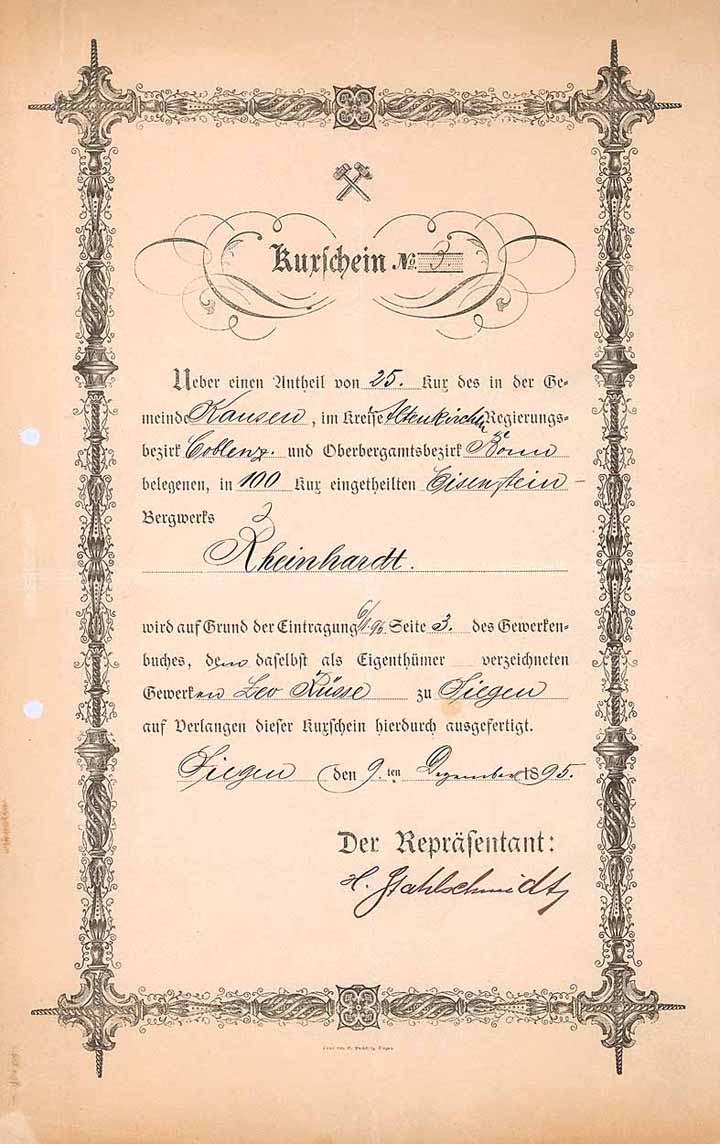 Kuxschein No. 3.
Ueber einen Antheil von 25. Kux des in der Ge-
meinde Kausen, im Kreise Altenkirchen Regierungs-
bezirk Coblenz. und Oberbergamtsbezirk Bonn
belegenen, in 100 Kux eingetheilten Eisenstein-
Bergwerks
Rheinhardt.
wird auf Grund der Eintragung Seite 3. des Gewerken-
buches, dem daselbst als Eigenthümer verzeichneten
Gewerken Leo zu Siegen
auf Verlangen dieser Kuxschein hierdurch ausgefertigt.
Siegen den 9. ten Dezember 1895.
Der Repräsentant:
H. Stahlschmidt